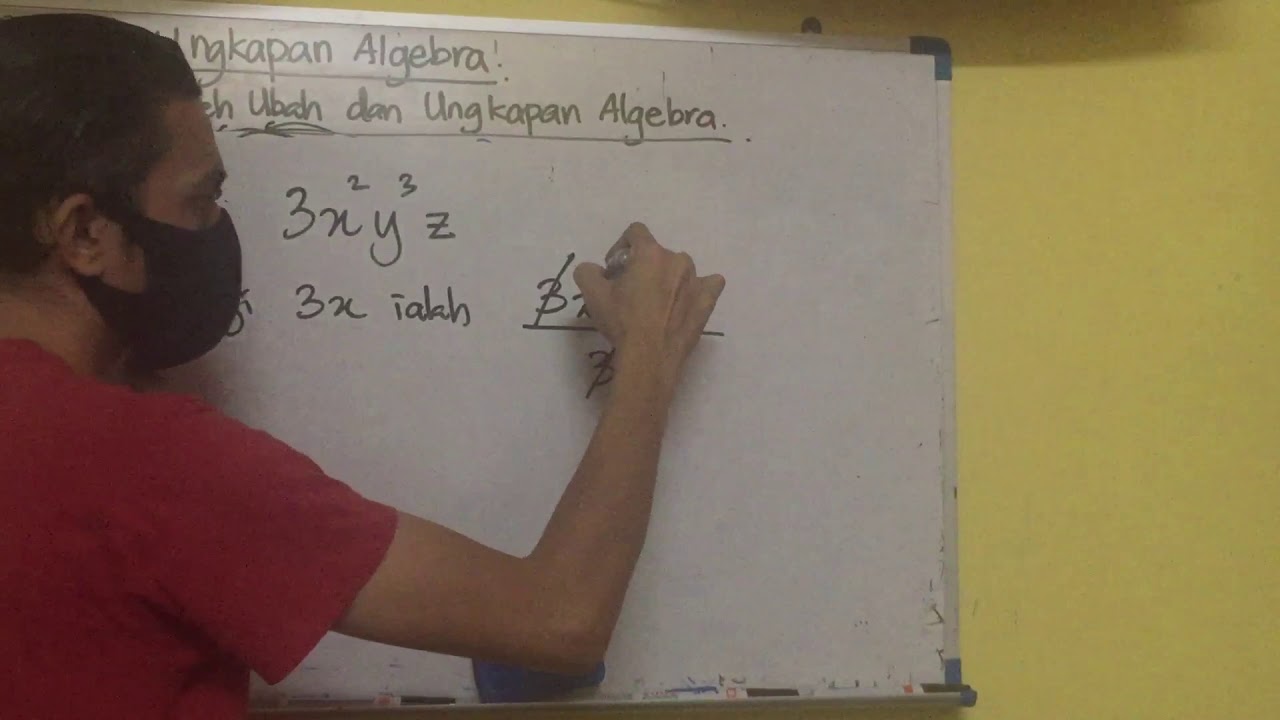 Ungkapan Algebra!
Ubah dan Ungkapan Algebra.
3x²y³z
3x ialah 3x
3